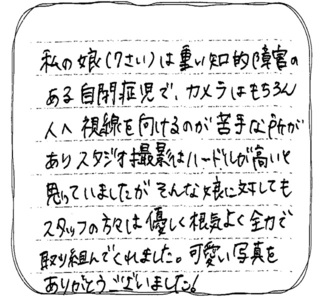 私の娘(7さい)は重い知的障害の
ある自閉症児で、カメラはもちろん
人へ視線を向けるのが苦手な所が
ありスタジオ撮影はハードルが高いと
思っていましたが そんな娘に対しても
スタッフの方々は優しく根気よく全力で
取り組んでくれました。可愛い写真を
ありがとうございました!